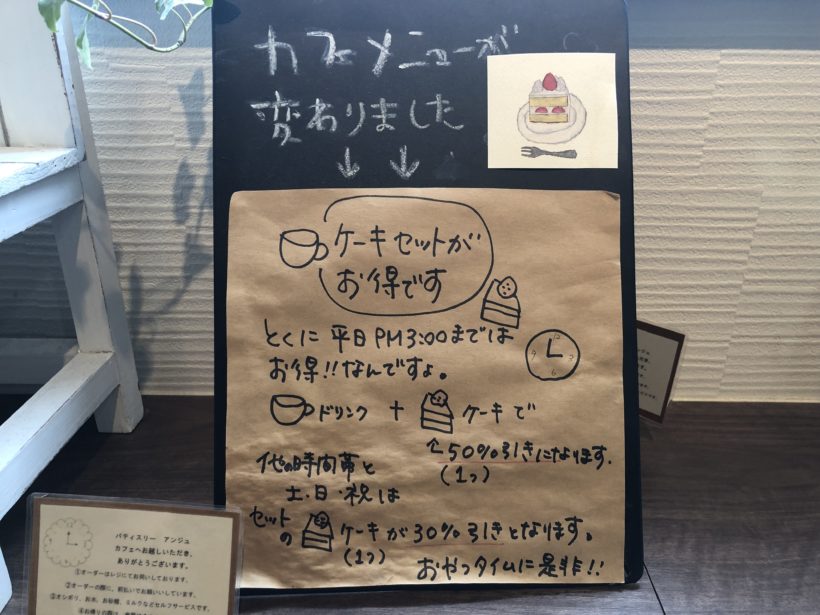 カフェメニューが
変わりました
↓ ↓
ケーキセットが
お得です
とくに 平日 PM3:00までは
お得!!なんですょ。
ドリンク + ケーキで
50%引きになります.
(1つ)
他の時間帯と
土・日・祝は
セットの ケーキが 30%引きとなります。
(1つ)
おやつタイムに是非!!
パティスリー アンジュ
カフェへお越しいただき、
ありがとうございます。
①オーダーはレジにてお伺いしております。
②オーダーの際に、前払いでお願いいしています。
③オシボリ、お水、お砂糖、ミルクなどセルフサービスです。